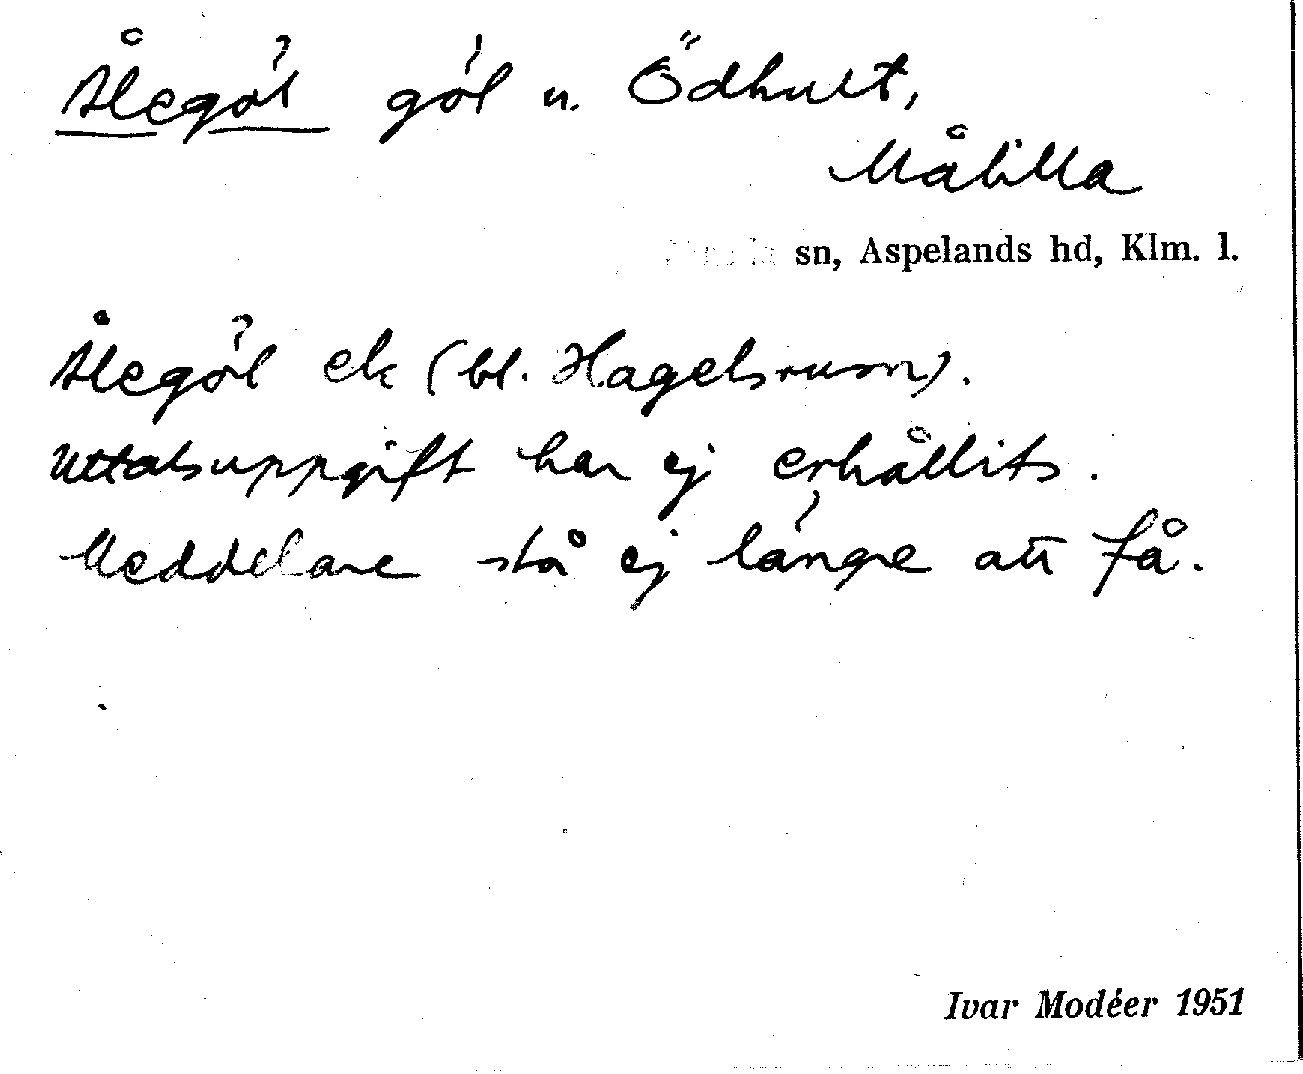 Ålegöl göl n. Ödhult,
Målilla
sn, Aspelands hd, Klm. l.
Ålegöl ek (bl. Hagelsrum).
Uttalsuppgift har ej erhållits.
Meddelare stå ej längre att få.
Ivar Modéer 1951